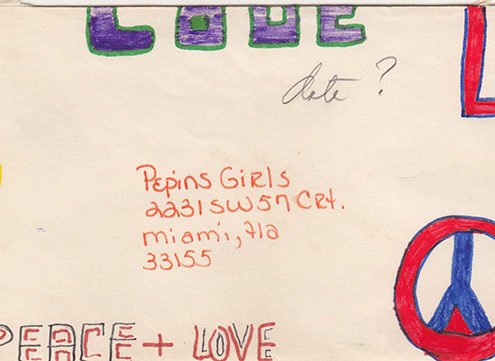 LOVE
date ?
L
Pepins Girls
2231 SW 57 CRt.
miami, Fla
33155
PEACE + LOVE